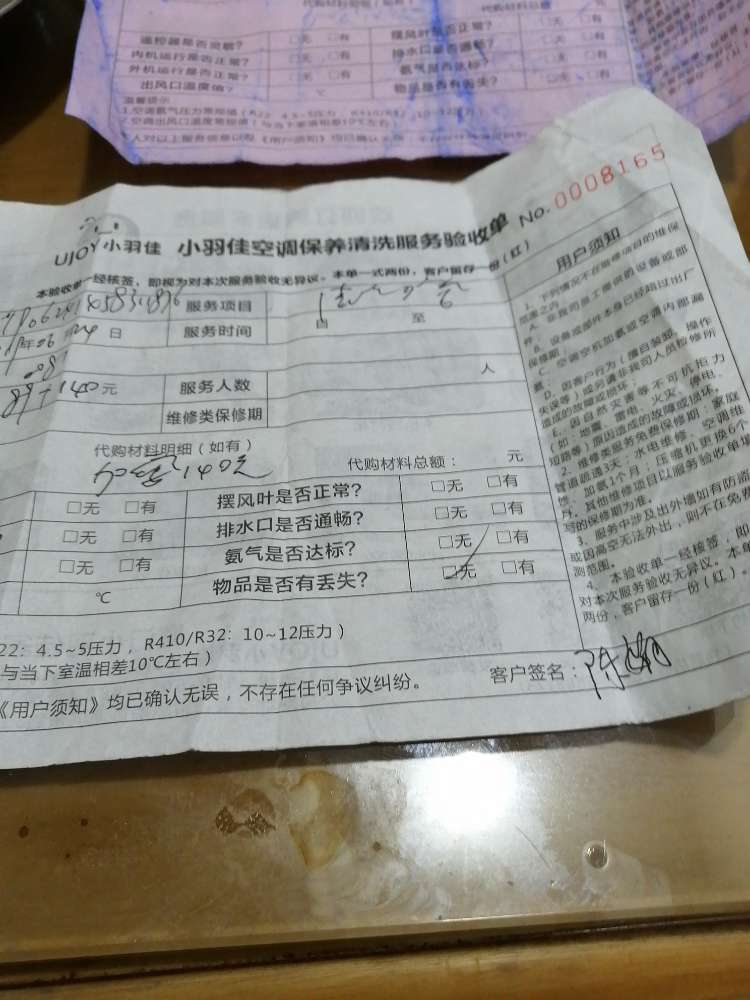 代购材料总额: 元
遥控器是否灵敏? □无 □有 摆风叶是否正常? □无 □有
内机运行是否正常? □无 □有 排水口是否通畅? □无 □有
外机运行是否正常? □无 □有 氨气是否达标? □无 □有
出风口温度值? ℃ 物品是否有丢失? □无 □有
温馨提示
UJOY小羽佳 小羽佳空调保养清洗服务验收单 No. 0008165
本验收单一经核签,即视为对本次服务验收无异议。本单一式两份,客户留存一份(红)
服务项目
年06 24日 服务时间 自 至
89+140元 服务人数 人
维修类保修期
代购材料明细(如有) 代购材料总额: 元
加氨140元
□无 □有 摆风叶是否正常? □无 □有
□无 □有 排水口是否通畅? □无 □有
□无 □有 氨气是否达标? □无 □有
℃ 物品是否有丢失? □无 □有
22: 4.5~5压力, R410/R32: 10~12压力)
与当下室温相差10℃左右)
《用户须知》均已确认无误,不存在任何争议纠纷。 客户签名: 陈
用户须知
1、下列情况不在维修项目的维保
范围之内:
A、非我司员工提供的设备或部
件;
B、设备或部件本身已经超过出厂
保修期;
C、空调空机加氨或空调内部漏
氨;
D、因客户行为(擅自装卸、操作
失误等)或另请非我司人员检修所
造成的故障或损坏;
E、因自然灾害等不可抗拒力
(如:地震、雷电、火灾、停电、
短路等)原因造成的故障或损坏。
2、维修类服务免费保期:家庭
管道疏通3天;水电维修、空调维
修、加氨1个月;压缩机更换6个
月。其他维修项目以服务验收单填
写的保修期为准。
3、服务中涉及出外墙如有防盗
或因高空无法外出,则不在免
测范围。
4、本验收单一经核签,即
对本次服务验收无异议。本单
两份,客户留存一份(红)。